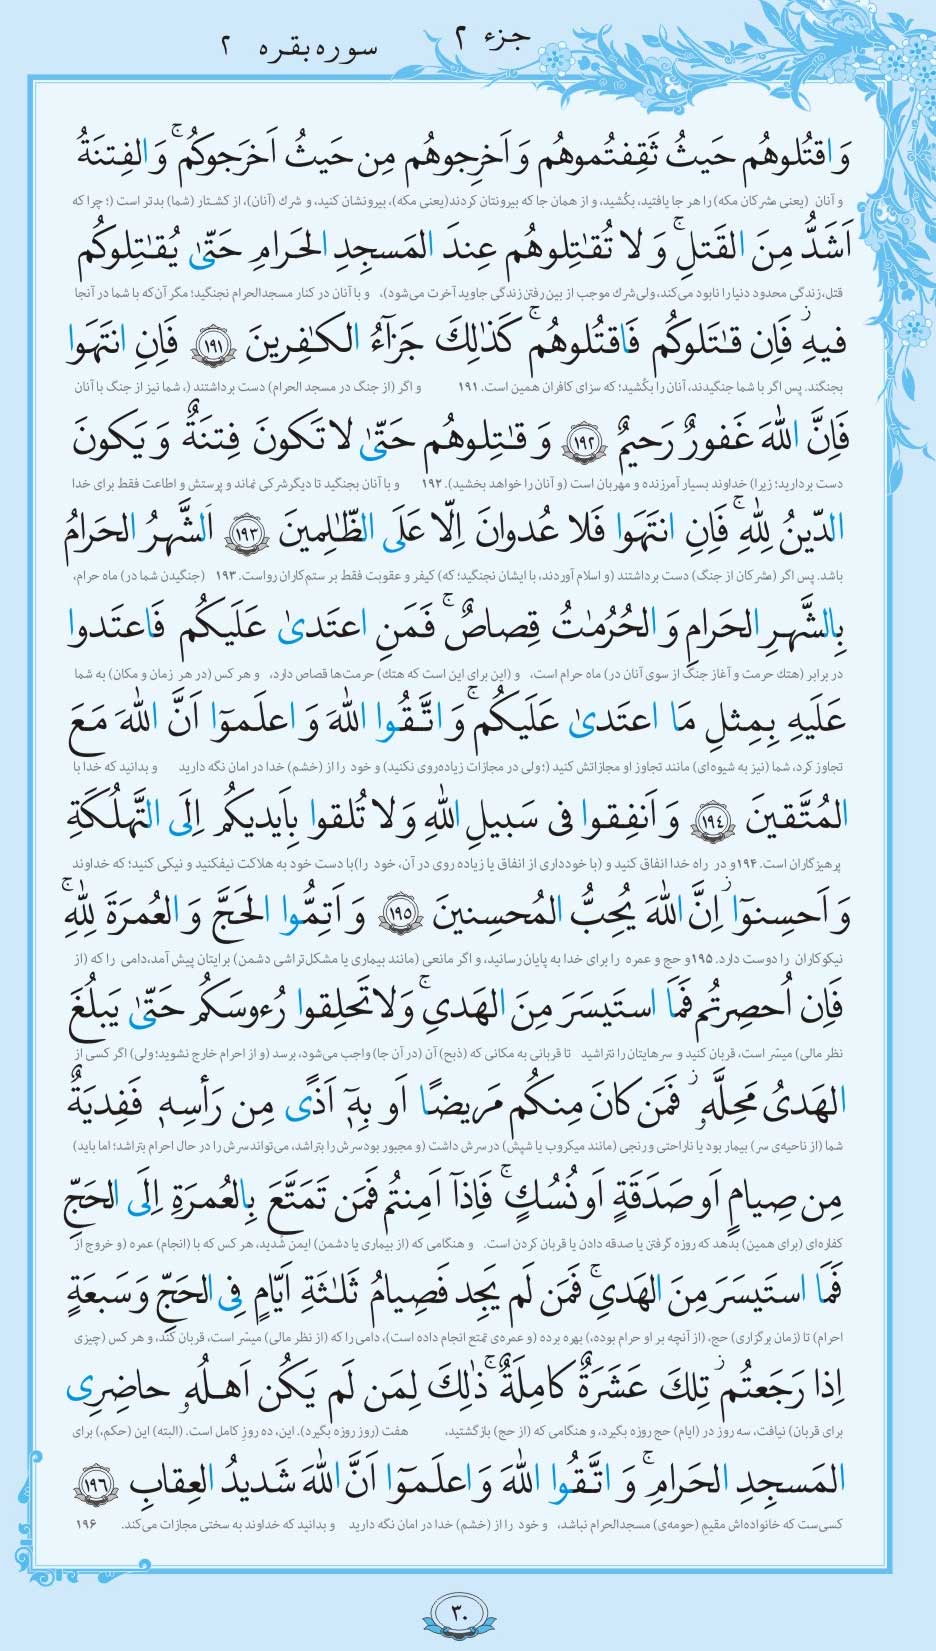 جزء ۲
سوره بقره ۲
وَ اقتُلوهُم حَیثُ ثَقِفتُموهُم وَ اَخرِجوهُم مِن حَیثُ اَخرَجوکُم ۚ وَ الفِتنَةُ
و آنان (یعنی مشرکان مکه) را هر جا یافتید، بکُشید، و از همان جا که بیرونتان کردند(یعنی مکه)، بیرونشان کنید، و شرك (آنان)، از کشتار (شما) بدتر است (؛ چرا که
اَشَدُّ مِنَ القَتلِ ۚ وَ لا تُقٰتِلوهُم عِندَ المَسجِدِ الحَرامِ حَتّیٰ یُقٰتِلوکُم
قتل، زندگی محدود دنیا را نابود می‌کند، ولی شرك موجب از بین رفتن زندگی جاوید آخرت می‌شود)، و با آنان در کنار مسجدالحرام نجنگید؛ مگر آن‌که با شما در آنجا
فیهِ ۖ فَاِن قٰتَلوکُم فَاقتُلوهُم ۚ کَذٰلِكَ جَزآءُ الکٰفِرینَ ﴿۱۹۱﴾ فَاِنِ انتَهَوا
بجنگند. پس اگر با شما جنگیدند، آنان را بکُشید؛ که سزای کافران همین است. ۱۹۱ و اگر (از جنگ در مسجد الحرام) دست برداشتند (، شما نیز از جنگ با آنان
فَاِنَّ اللّٰهَ غَفورٌ رَحیمٌ ﴿۱۹۲﴾ وَ قٰتِلوهُم حَتّیٰ لا تَکونَ فِتنَةٌ وَ یَکونَ
دست بردارید؛ زیرا) خداوند بسیار آمرزنده و مهربان است (و آنان را خواهد بخشید). ۱۹۲ و با آنان بجنگید تا دیگر شرکی نماند و پرستش و اطاعت فقط برای خدا
الدّینُ لِلّٰهِ ۚ فَاِنِ انتَهَوا فَلا عُدوانَ اِلّا عَلَی الظّٰلِمینَ ﴿۱۹۳﴾ اَلشَّهرُ الحَرامُ
باشد. پس اگر (مشرکان از جنگ) دست برداشتند (و اسلام آوردند، با ایشان نجنگید؛ که) کیفر و عقوبت فقط بر ستم‌کاران رواست. ۱۹۳ (جنگیدن شما در) ماه حرام،
بِالشَّهرِ الحَرامِ وَ الحُرُمٰتُ قِصاصٌ ۚ فَمَنِ اعتَدیٰ عَلَیکُم فَاعتَدوا
در برابر (هتك حرمت و آغاز جنگ از سوی آنان در) ماه حرام است، و (این برای این است که هتك) حرمت‌ها قصاص دارد، و هر کس (در هر زمان و مکان) به شما
عَلَیهِ بِمِثلِ مَا اعتَدیٰ عَلَیکُم ۚ وَ اتَّقُوا اللّٰهَ وَ اعلَموٓا اَنَّ اللّٰهَ مَعَ
تجاوز کرد، شما (نیز به شیوه‌ای) مانند تجاوز او مجازاتش کنید (؛ ولی در مجازات زیاده‌روی نکنید) و خود را از (خشم) خدا در امان نگه دارید و بدانید که خدا با
المُتَّقینَ ﴿۱۹٤﴾ وَ اَنفِقوا فی سَبیلِ اللّٰهِ وَ لا تُلقوا بِاَیدیکُم اِلَی التَّهلُکَةِ
پرهیزگاران است. ۱۹۴ و در راه خدا انفاق کنید و (با خودداری از انفاق یا زیاده روی در آن، خود را)با دست خود به هلاکت نیفکنید و نیکی کنید؛ که خداوند
وَ اَحسِنوٓا ۖ اِنَّ اللّٰهَ یُحِبُّ المُحسِنینَ ﴿۱۹۵﴾ وَ اَتِمُّوا الحَجَّ وَ العُمرَةَ لِلّٰهِ ۚ
نیکوکاران را دوست دارد. ۱۹۵ و حج و عمره را برای خدا به پایان رسانید، و اگر مانعی (مانند بیماری یا مشکل‌تراشی دشمن) برایتان پیش آمد، دامی را که (از
فَاِن اُحصِرتُم فَمَا استَیسَرَ مِنَ الهَدیِ ۚ وَ لا تَحلِقوا رُءوسَکُم حَتّیٰ یَبلُغَ
نظر مالی) میسّر است، قربان کنید و سرهایتان را نتراشید تا قربانی به مکانی که (ذبح) آن (در آن جا) واجب می‌شود، برسد (و از احرام خارج نشوید؛ ولی) اگر کسی از
الهَدیُ مَحِلَّهٗ ۚ فَمَن کانَ مِنکُم مَریضًا اَو بِهٖٓ اَذًی مِن رَأسِهٖ فَفِدیَةٌ
شما (از ناحیه‌ی سر) بیمار بود یا ناراحتی و رنجی (مانند میکروب یا شپش) در سرش داشت (و مجبور بود سرش را بتراشد، می‌تواند سرش را در حال احرام بتراشد؛ اما باید)
مِن صِیامٍ اَو صَدَقَةٍ اَو نُسُكٍ ۚ فَاِذآ اَمِنتُم فَمَن تَمَتَّعَ بِالعُمرَةِ اِلَی الحَجِّ
کفاره‌ای (برای همین) بدهد که روزه گرفتن یا صدقه دادن یا قربان کردن است. و هنگامی که (از بیماری یا دشمن) ایمن شدید، هر کس که با (انجام) عمره (و خروج از
فَمَا استَیسَرَ مِنَ الهَدیِ ۚ فَمَن لَم یَجِد فَصِیامُ ثَلٰثَةِ اَیّامٍ فِی الحَجِّ وَ سَبعَةٍ
احرام) تا (زمان برگزاری) حج، (از آنچه بر او حرام بوده،) بهره برده (و عمره‌ی تمتع انجام داده است)، دامی را که (از نظر مالی) میسّر است، قربان کند، و هر کس (چیزی
اِذا رَجَعتُم ۗ تِلكَ عَشَرَةٌ کامِلَةٌ ۗ ذٰلِكَ لِمَن لَم یَکُن اَهلُهٗ حاضِرِی
برای قربان) نیافت، سه روز در (ایام) حج روزه بگیرد، و هنگامی که (از حج) بازگشتید، هفت (روز روزه بگیرد). این، ده روزِ کامل است. (البته) این (حکم،) برای
المَسجِدِ الحَرامِ ۚ وَ اتَّقُوا اللّٰهَ وَ اعلَموٓا اَنَّ اللّٰهَ شَدیدُ العِقابِ ﴿۱۹٦﴾
کسی‌ست که خانواده‌اش مقیمِ (حومه‌ی) مسجدالحرام نباشد، و خود را از (خشم) خدا در امان نگه دارید و بدانید که خداوند به سختی مجازات می‌کند. ۱۹۶
۳۰